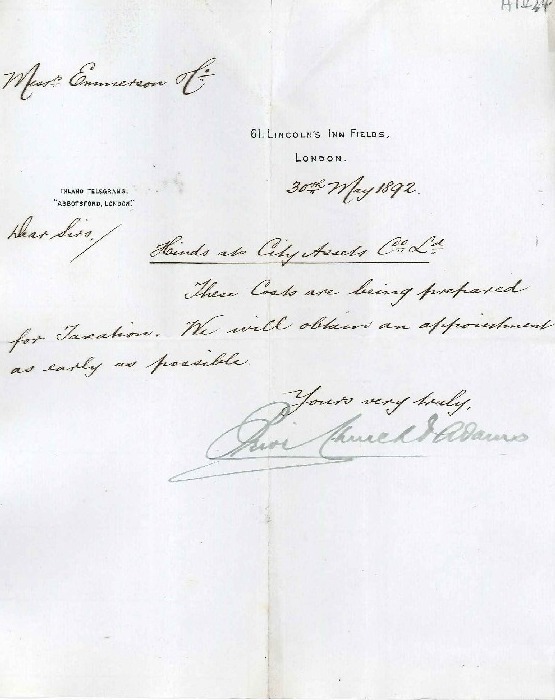 Messrs Emmerson & Co
61, LINCOLN'S INN FIELDS,
LONDON.
30th May 1892.
INLAND TELEGRAMS,
"ABBOTSFORD, LONDON."
Dear Sirs,
Hinds ats City Assets Coo Ld
These Costs are being prepared
for Taxation. We will obtain an appointment
as early as possible
Yours very truly,
Church & Adams